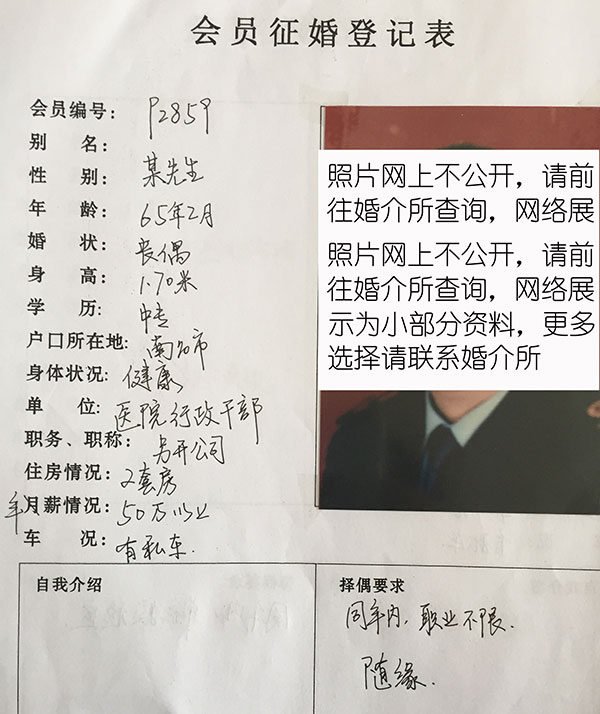 会员征婚登记表
会员编号: P2859
别 名:
性 别: 某先生
年 龄: 65年2月
婚 状: 丧偶
身 高: 1.70米
学 历: 中专
户口所在地: 南宁市
身体状况: 健康
单 位: 医院行政干部
职务、职称: 另开公司
住房情况: 2套房
年、月薪情况: 50万以上
车 况: 有私车.
照片网上不公开，请前
往婚介所查询，网络展
照片网上不公开，请前
往婚介所查询，网络展
示为小部分资料，更多
选择请联系婚介所
自我介绍
择偶要求
同年内，职业不限.
随缘.